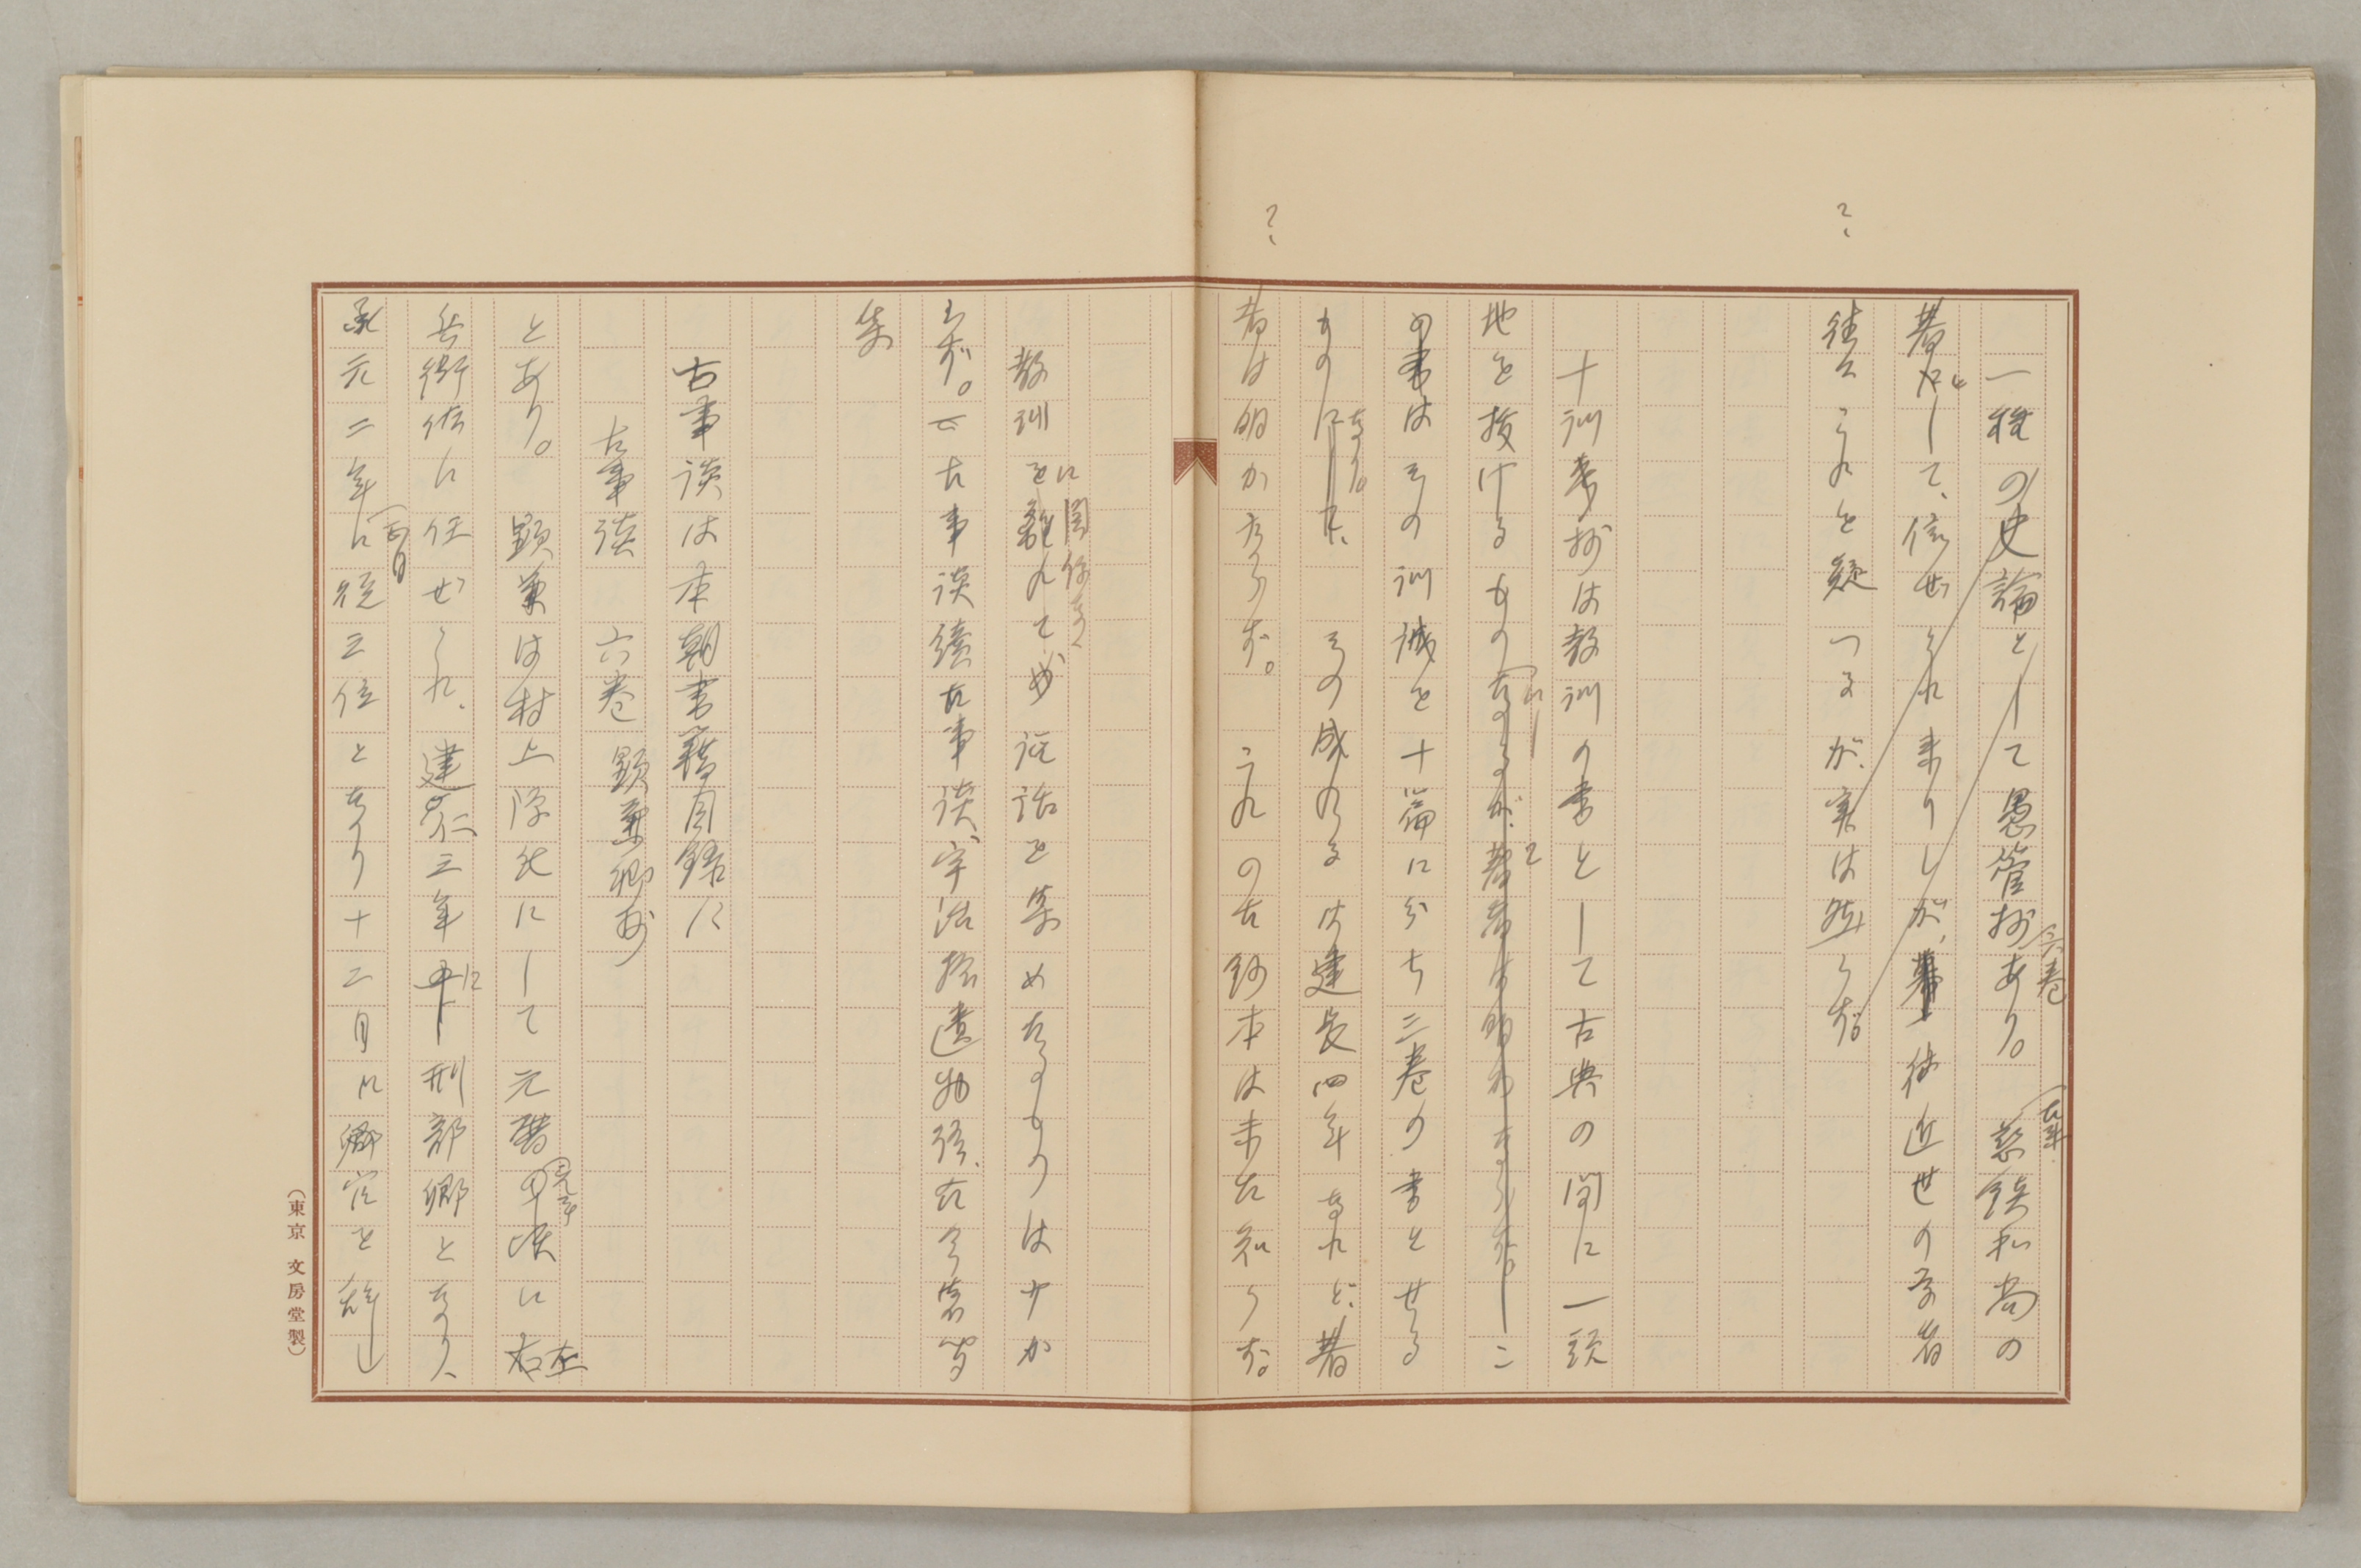 一種の史論として愚管抄六巻あり。古来慈鎮和尚の
著として、信ぜられ来りしが、後近世の学者
往々これを疑つるが、実は然らず。
十訓抄は教訓の書として古典の間に一頭
地を抜けるものなるが、著者は明かならず。こ
の書はその訓誡を十篇に分ち三巻の書とせる
ものなり。その成れるは建長四年なれど、著
者は明かならず。これの古鈔本は未だ知らず。
教訓に関係なく説話を集めたるものは少か
らず。古事談続古事談、宇治拾遺物語、古今著聞
集
古事談は本朝書籍目録に
古事談 六巻 顕兼卿抄
とあり。顕兼は村上源氏にして元暦元年に左
兵衛佐に任ぜられ、建仁三年に刑部卿となり、
承元二年正月に従三位となり十二月に卿官を辞し
?
?
(東京 文房堂製)